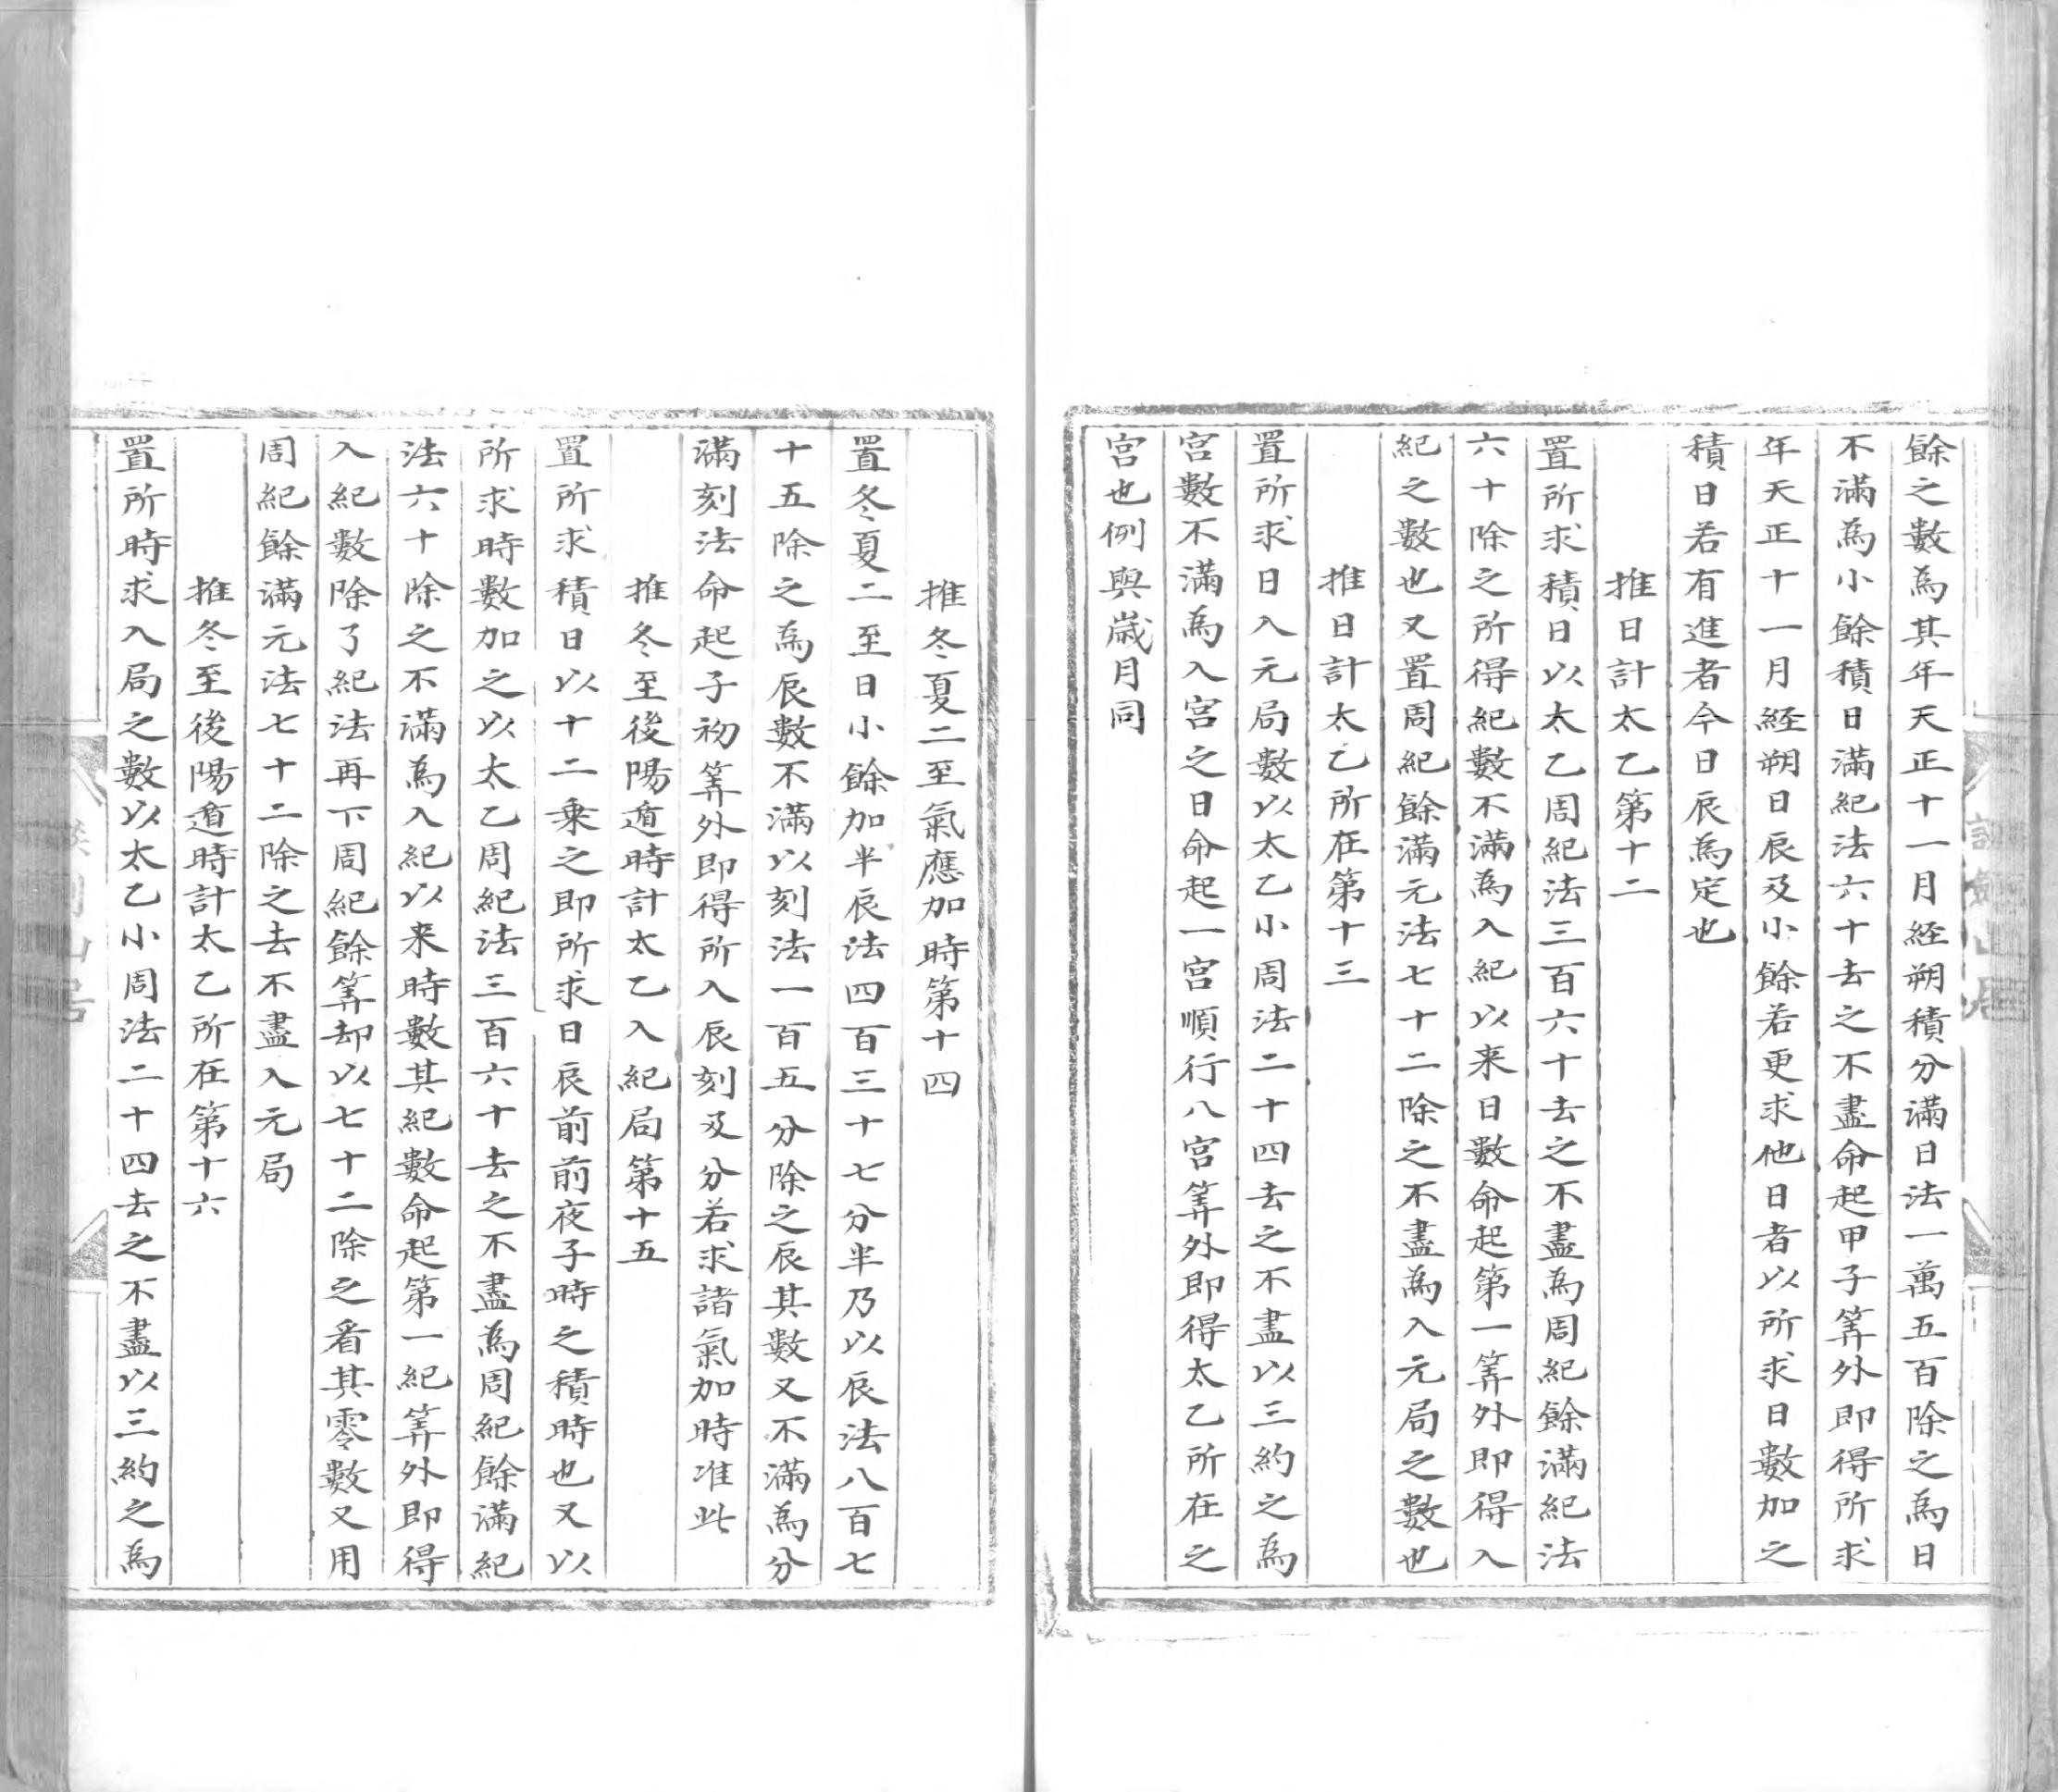 餘之數為其年天正十一月経朔積分滿日法一萬五百除之為日
不滿為小餘積日滿紀法六十去之不盡命起甲子筭外即得所求
年天正十一月経朔日辰及小餘若更求他日者以所求日數加之
積日若有進者今日辰為定也
推日計太乙第十二
置所求積日以太乙周紀法三百六十去之不盡為周紀餘滿紀法
六十除之所得紀數不滿為入紀以来日數命起第一筭外即得入
紀之數也又置周紀餘滿元法七十二除之不盡為入元局之數也
推日計太乙所在第十三
置所求日入元局數以太乙小周法二十四去之不盡以三約之為
宫數不滿為入宫之日命起一宫順行八宫筭外即得太乙所在之
宫也例與歲月同
推冬夏二至氣應加時第十四
置冬夏二至日小餘加半辰法四百三十七分半乃以辰法八百七
十五除之為辰數不滿以刻法一百五分除之辰其數又不滿為分
滿刻法命起子初筭外即得所入辰刻及分若求諸氣加時准此
推冬至後陽遁時計太乙入紀局第十五
置所求積日以十二乗之即所求日辰前前夜子時之積時也又以
所求時數加之以太乙周紀法三百六十去之不盡為周紀餘滿紀
法六十除之不滿為入紀以来時數其紀數命起第一紀筭外即得
入紀數除了紀法再下周紀餘筭却以七十二除之看其零數又用
周紀餘滿元法七十二除之去不盡入元局
推冬至後陽遁時計太乙所在第十六
置所時求入局之數以太乙小周法二十四去之不盡以三約之為